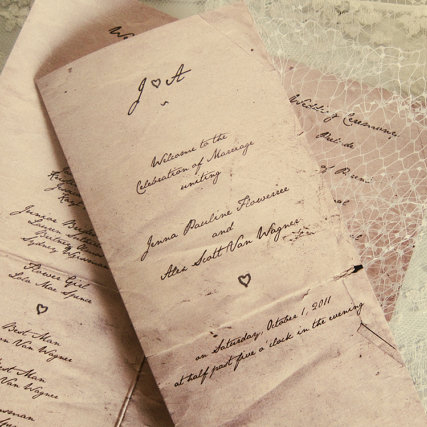 J ♡ A
Welcome to the
Celebration of Marriage
uniting
Jenna Pauline Flowerree
and
Alex Scott Van Wagner
♡
on Saturday, October 1, 2011
at half past five o'clock in the evening
We
Junior
Flower Girl
Lola Mae Spence
♡
Best Man
Van Wagner
Best Man
Van Wagner
Wedding Ceremony
Prelude